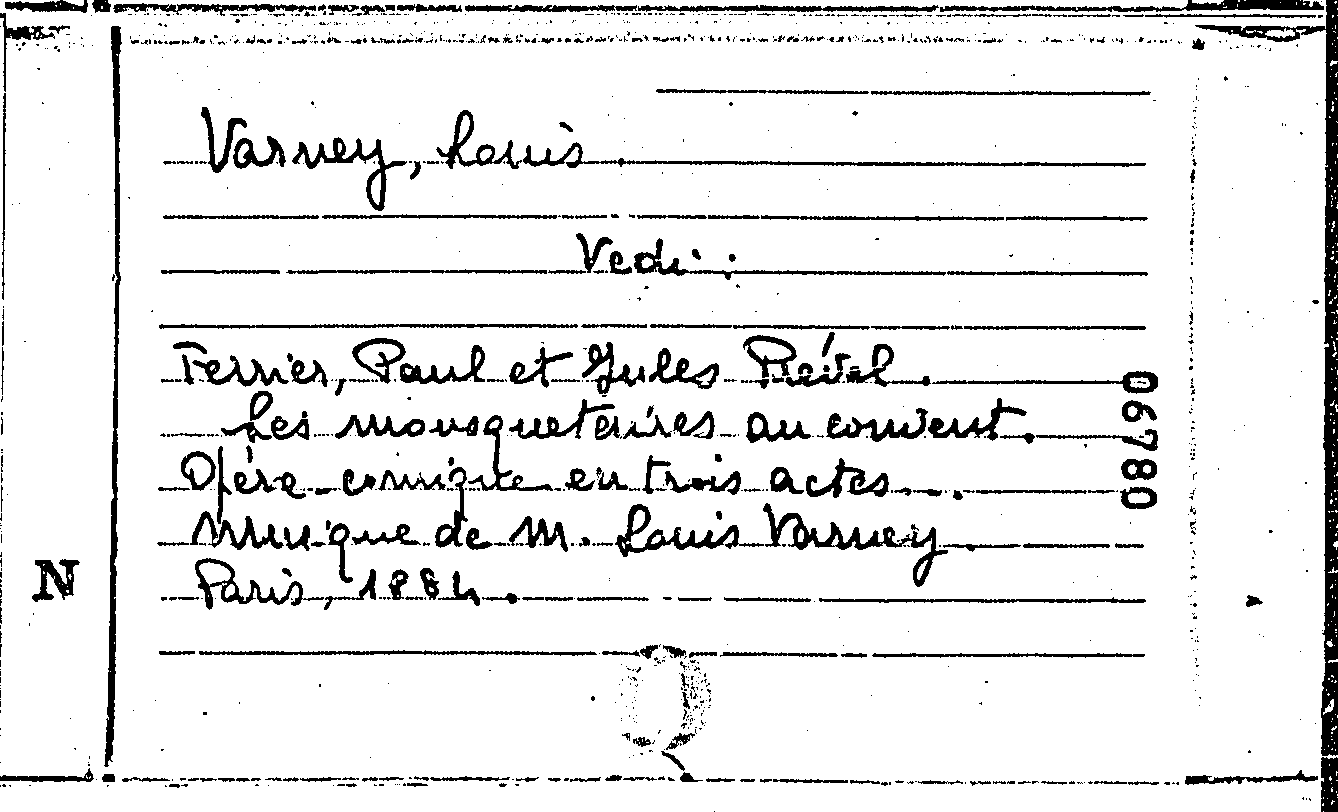 Varney, Louis.
Vedi:
Ferrier, Paul et Jules Prével.
Les mousquetaires au couvent.
Opéra comique en trois actes...
Musique de M. Louis Varney.
Paris, 1884.
06780
N